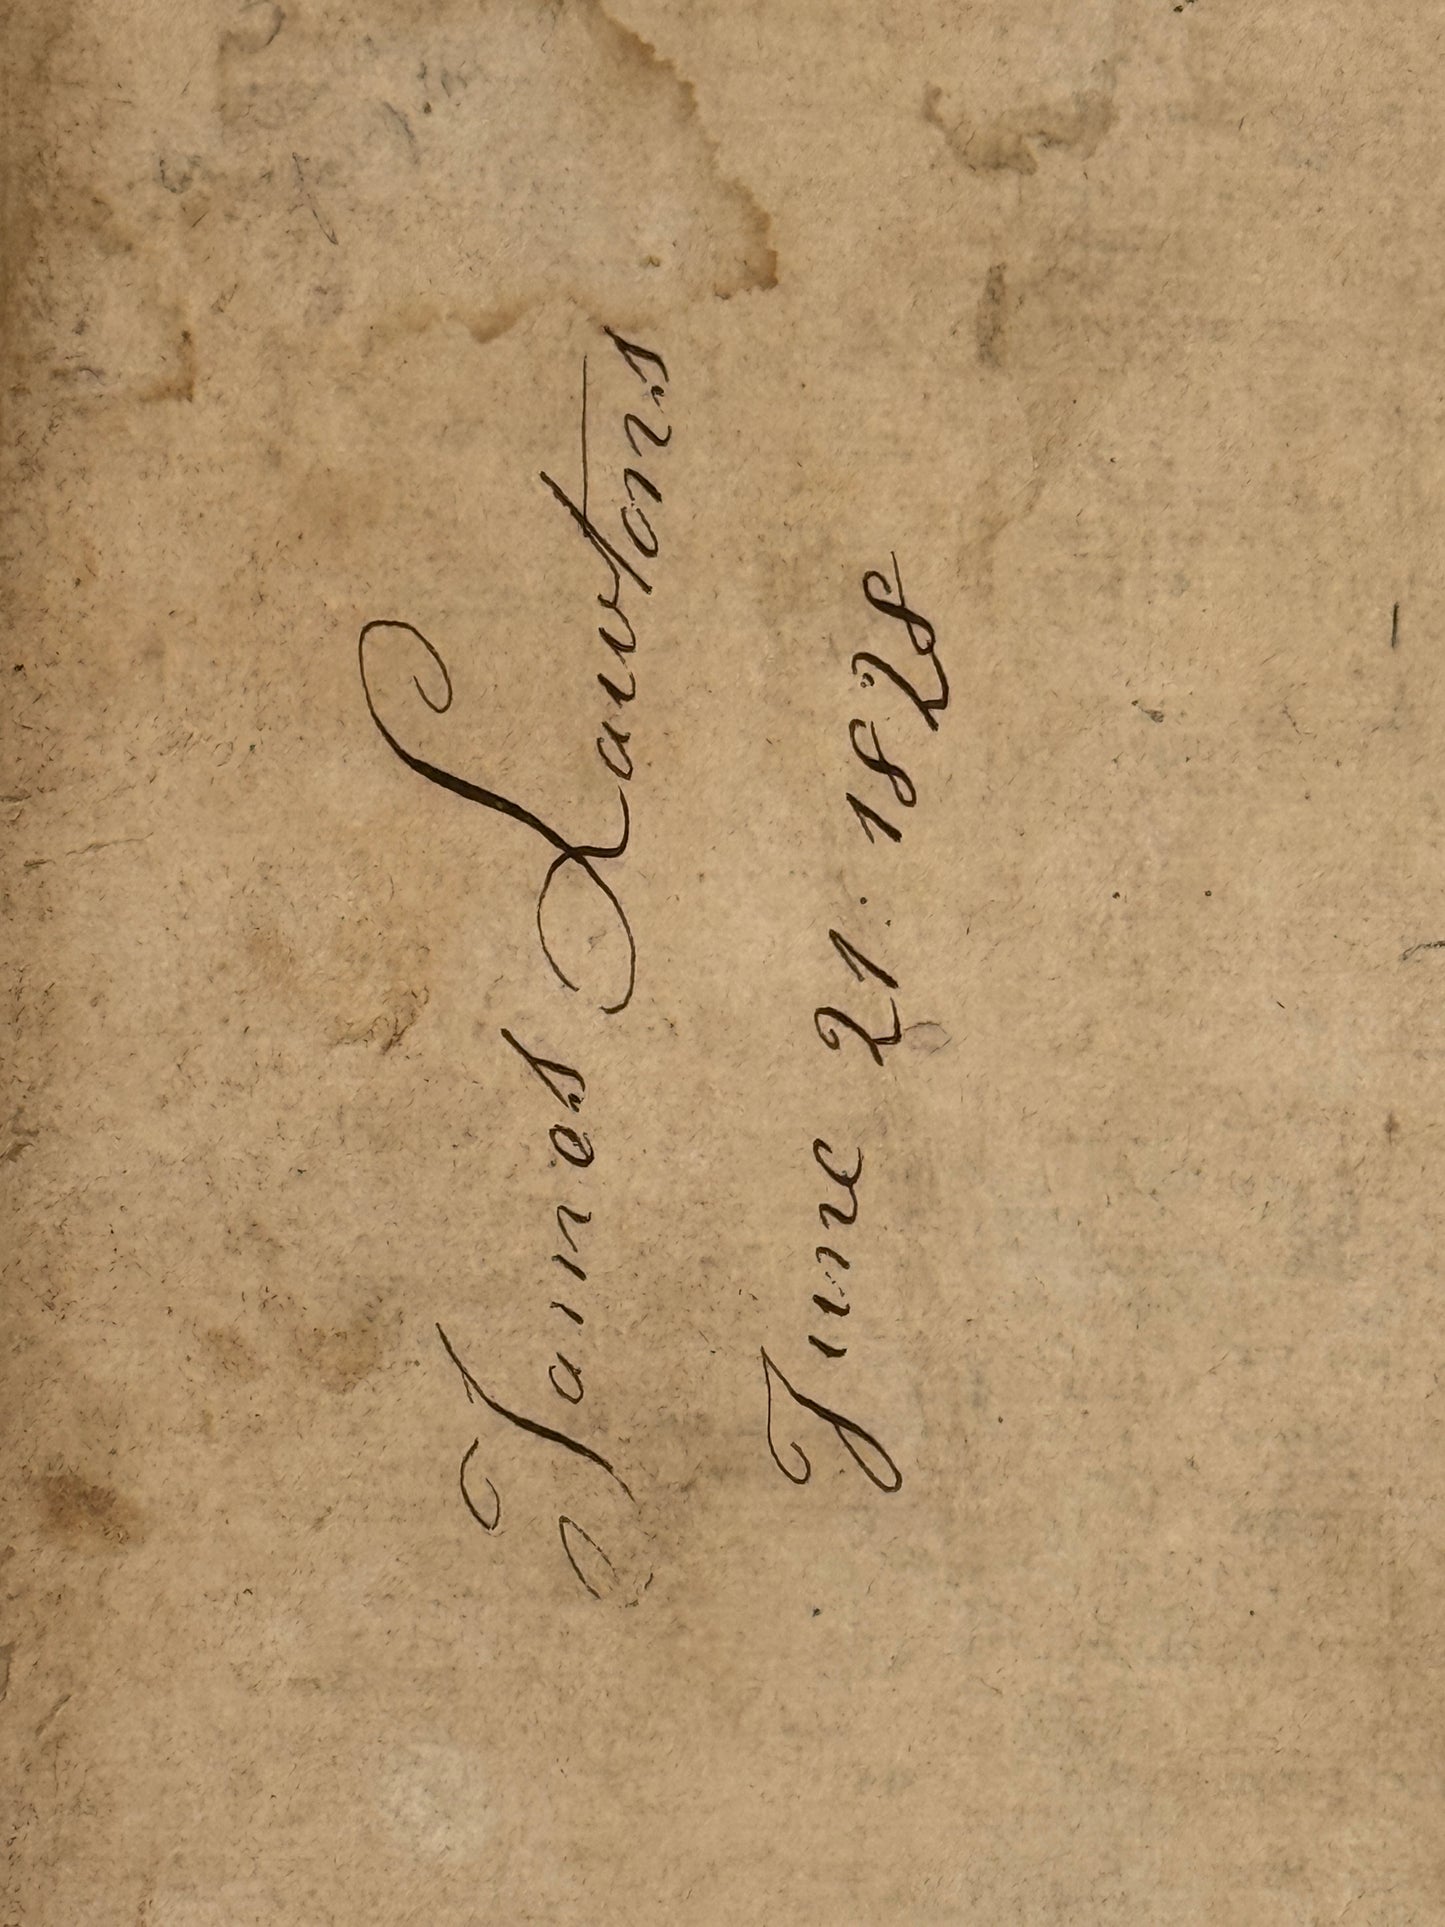 James Lawtons
June 21. 1828